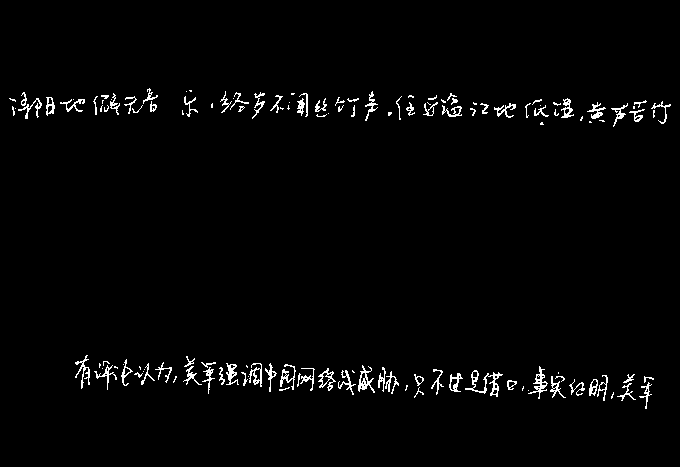 浔阳地僻无音乐，终岁不闻丝竹声。住近湓江地低湿，黄芦苦竹
有评论认为，美军强调中国网络战威胁，只不过是借口，事实证明，美军